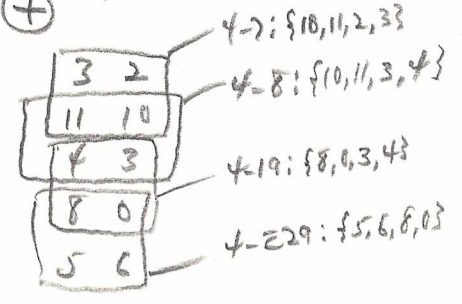 +
3 2
11 10
4 3
8 0
5 6
4-7: {10,11,2,3}
4-8: {10,11,3,4}
4-19: {8,0,3,4}
4-z29: {5,6,8,0}